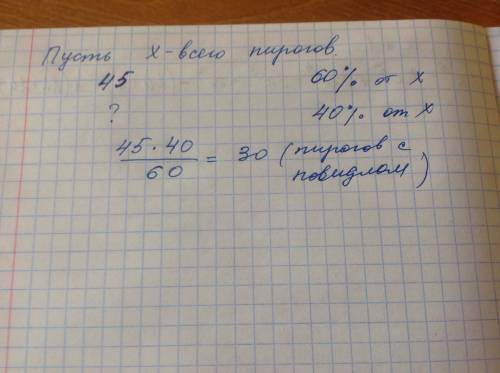 Пусть х - всего пирогов.
45 60% от х
? 40% от х
45 · 40 / 60 = 30 (пирогов с повидлом)